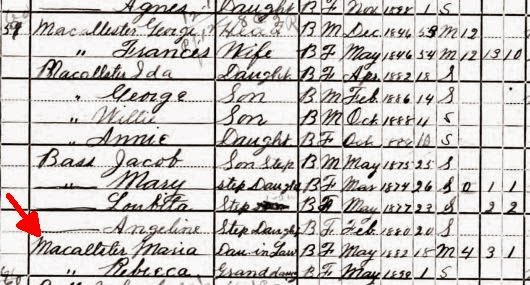 Agnes Daught B F Nov 1898 1 S
59 Macallester George Head B M Dec 1846 53 M 12
" Frances Wife B F May 1846 54 M 12 13 10
Macallister Ida Daught B F Apr 1882 18 S
" George Son B M Feb 1886 14 S
" Willie Son B M Oct 1888 11 S
" Annie Daught B F Oct 10 S
Bass Jacob Son Step B M May 1875 25 S
" Mary Step Daught B F Mar 1874 26 S 0 1 1
" Step B F May 1877 23 S 2 2
Angeline Step Daught B F Feb 1880 20 S
Macallister Maria Dau-in Law B F May 1882 18 M 4 3 1
" Rebecca Grand daug B F May 1898 1 S